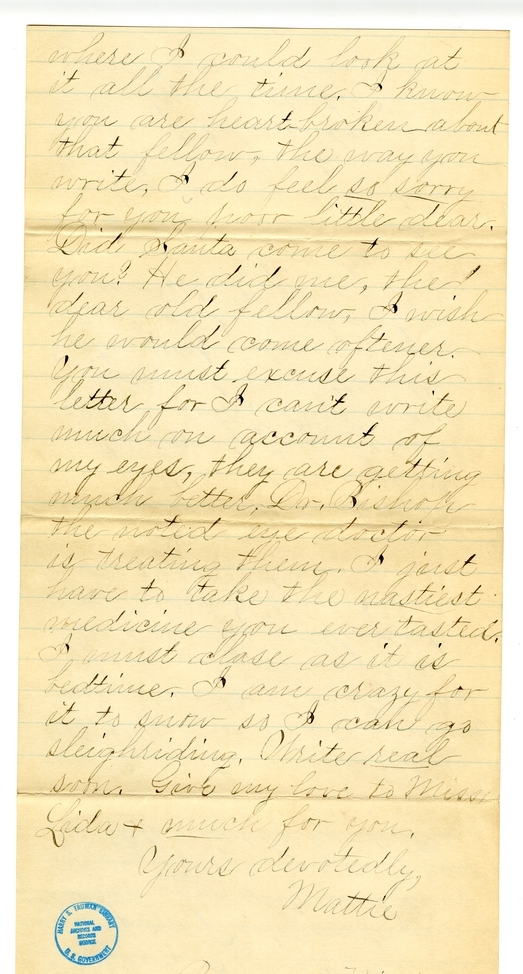 where I could look at
it all the time. I know
you are heart-broken about
that fellow, the way you
write, I do feel so sorry
for you poor little dear.
Did Santa come to see
you? He did me, the
dear old fellow, I wish
he would come oftener.
You must excuse this
letter for I can't write
much on account of
my eyes, they are getting
much better, Dr. Bishop
the noted eye doctor
is treating them. I just
have to take the nastiest
medicine you ever tasted.
I must close as it is
bedtime. I am crazy for
it to snow so I can go
sleighriding. Write real
soon. Give my love to Miss
Lida + much for you.
Yours devotedly,
Mattie
HARRY S. TRUMAN LIBRARY
NATIONAL
ARCHIVES AND
RECORDS
SERVICE
U.S. GOVERNMENT